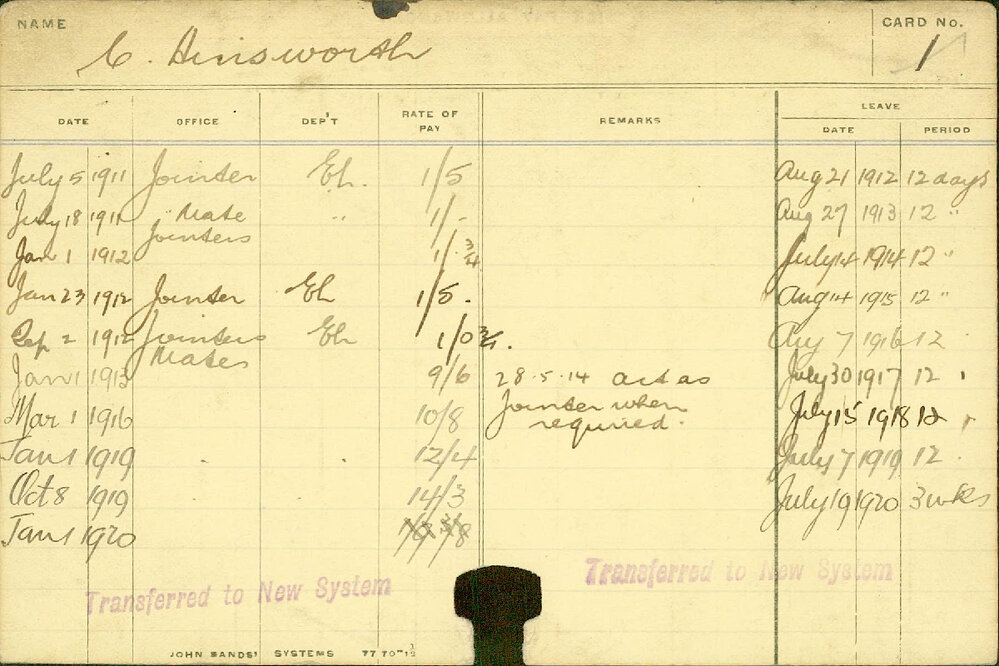 NAME CARD No.
C. Ainsworth 1
DATE OFFICE DEP'T RATE OF PAY REMARKS LEAVE
DATE PERIOD
July 5 1911 Jointer El. 1/5 Aug 21 1912 12 days
July 18 1911 " Mate " 1/- Aug 27 1913 12 "
Jan 1 1912 Jointers 1/-3/4 July 14 1914 12 "
Jan 23 1912 Jointer El 1/5. Aug 14 1915 12 "
Sep 2 1912 Jointers Mates El 1/0 3/4. Aug 7 1916 12
Jan 1 1913 9/6 28.5.14 act as July 30 1917 12 "
Mar 1 1916 10/8 Jointer when required. July 15 1918 12 "
Jan 1 1919 12/4 July 7 1919 12
Oct 8 1919 14/3 July 19 1920 3 wks
Jan 1 1920
Transferred to New System Transferred to New System
JOHN SANDS' SYSTEMS